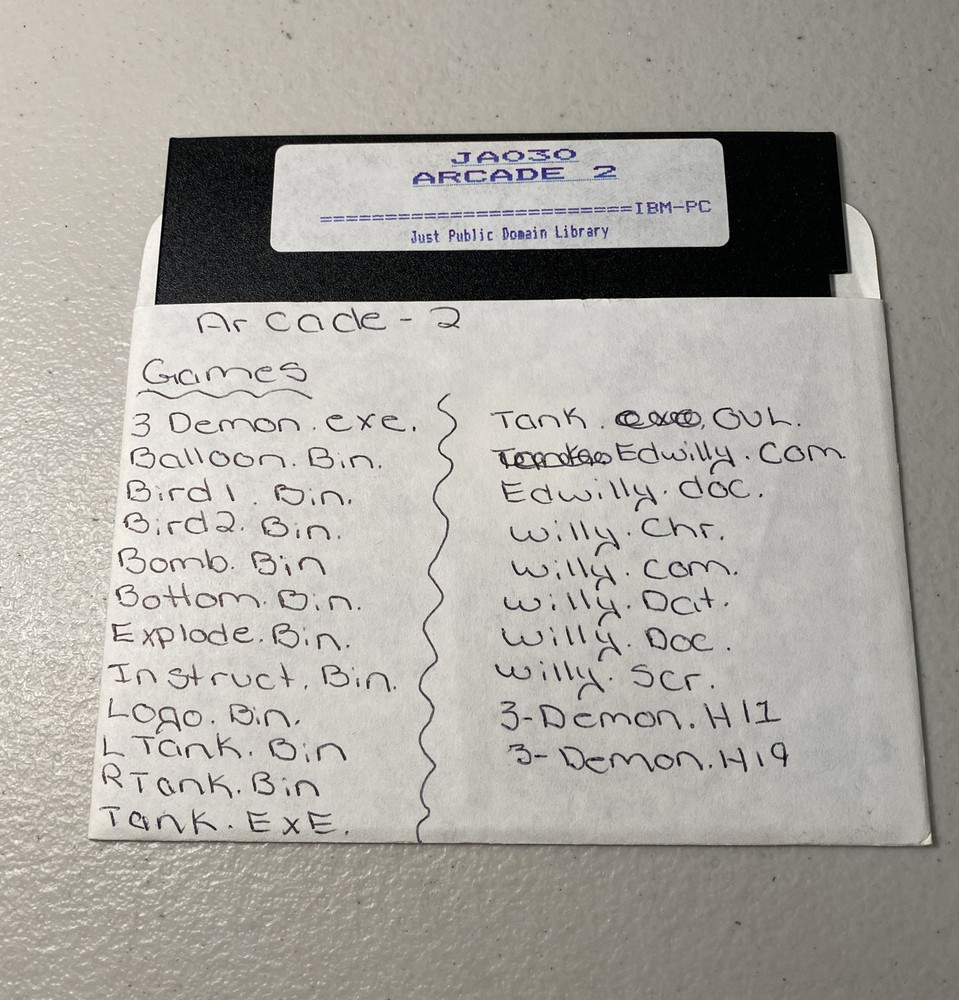 JA030
ARCADE 2
========================IBM-PC
Just Public Domain Library
Arcade - 2
Games
3 Demon. exe.
Balloon. Bin.
Bird1. Bin.
Bird2. Bin.
Bomb. Bin
Bottom. Bin.
Explode. Bin.
Instruct. Bin.
Logo. Bin.
L Tank. Bin
R Tank. Bin
Tank. ExE.
Tank. OVL.
Edwilly. Com
Edwilly. doc.
Willy. Chr.
Willy. Com.
Willy. Dat.
Willy. Doc.
Willy. Scr.
3-Demon. HI1
3-Demon. HI9